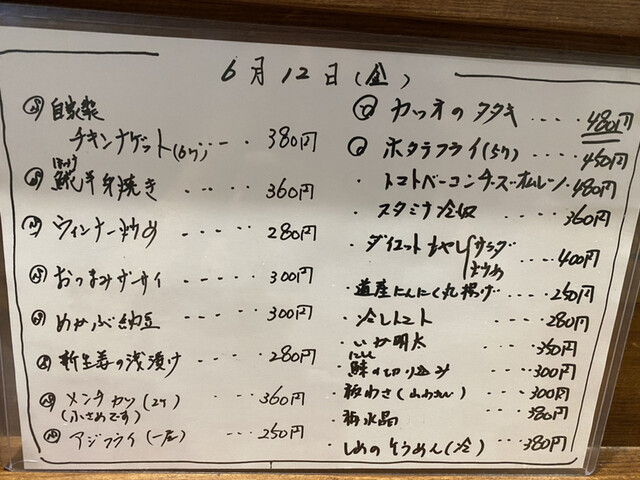 6月12日(金)
自家製
チキンナゲット(6ケ) ···· 380円
ほっけ
半身焼き ···· 360円
ウィンナー炒め ···· 280円
おつまみザーサイ ···· 300円
めかぶ納豆 ···· 300円
新生姜の浅漬け ··· 280円
メンチカツ(2ケ) ··· 360円
(小さめです)
アジフライ(一尾) ··· 250円
カツオのタタキ ···· 480円
ホタテフライ(5ケ) ···· 450円
・トマトベーコンチーズオムレツ・480円
・スタミナ冷奴 ···· 360円
・ダイエットもやしサラダ
炒め ···· 400円
・道産にんにく丸揚げ ···· 250円
・冷しトマト ···· 280円
・いか明太 ···· 350円
にしん
・鰊の切り込み ···· 300円
・板わさ(山わさび) ···· 300円
・梅水晶 ···· 380円
・しめのそうめん(冷) ···· 380円